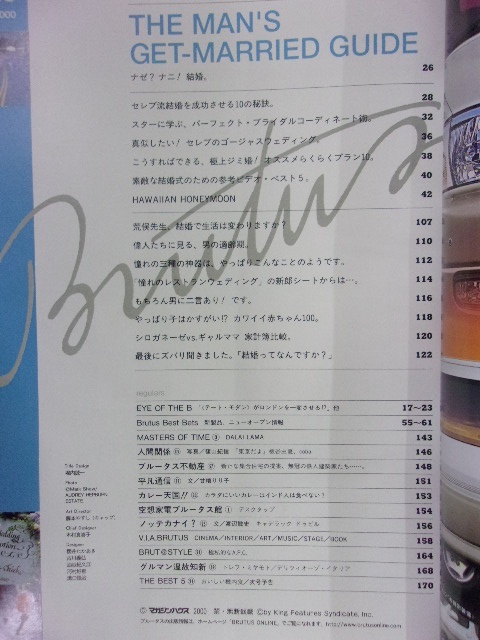 THE MAN'S
GET-MARRIED GUIDE
ナゼ？ナニ！結婚。 26
セレブ流結婚を成功させる10の秘訣。 28
スターに学ぶ、パーフェクト・ブライダルコーディネート術。 32
真似したい！セレブのゴージャスウェディング。 36
こうすればできる、極上ジミ婚！オススメらくらくプラン10。 38
素敵な結婚式のための参考ビデオ・ベスト5。 40
HAWAIIAN HONEYMOON 42
荒俣先生、結婚で生活は変わりますか？ 107
偉人たちに見る、男の適齢期。 110
憧れの三種の神器は、やっぱりこんなことのようです。 112
「憧れのレストランウェディング」の新郎シートからは…。 114
もちろん男に二言あり！です。 116
やっぱり子はかすがい!? カワイイ赤ちゃん100。 118
シロガネーゼvs.ギャルママ 家計簿比較。 120
最後にズバリ聞きました。「結婚ってなんですか？」 122
Brutus
regulars
EYE OF THE B 〈テート・モダン〉がロンドンを一新させる!?、他 17〜23
Brutus Best Bets 新製品、ニューオープン情報 55〜61
MASTERS OF TIME DALAI LAMA 143
人間関係 146
ブルータス不動産 148
平凡通信 151
カレー天国!! カラダにいいカレーはインド人は食べない？ 153
空想家電ブルータス館 デスクタップ 154
ノッテカナイ？ キャデラック 156
V.I.A.BRUTUS CINEMA/INTERIOR/ART/MUSIC/STAGE/BOOK 158
BRUT@STYLE 164
グルマン温故知新 168
THE BEST 5 170
Title Design
堀内誠一
Photo
©Mark Shaw/
AUDREY HEPBURN
ESTATE
Art Director
Chief Designer
Designer
© マガジンハウス 2000 禁・無断転載 ©by King Features Syndicate, Inc.
ブルータスの出版情報は、ホームページ「BRUTUS ONLINE」でご覧になれます。http://www.brutusonline.com